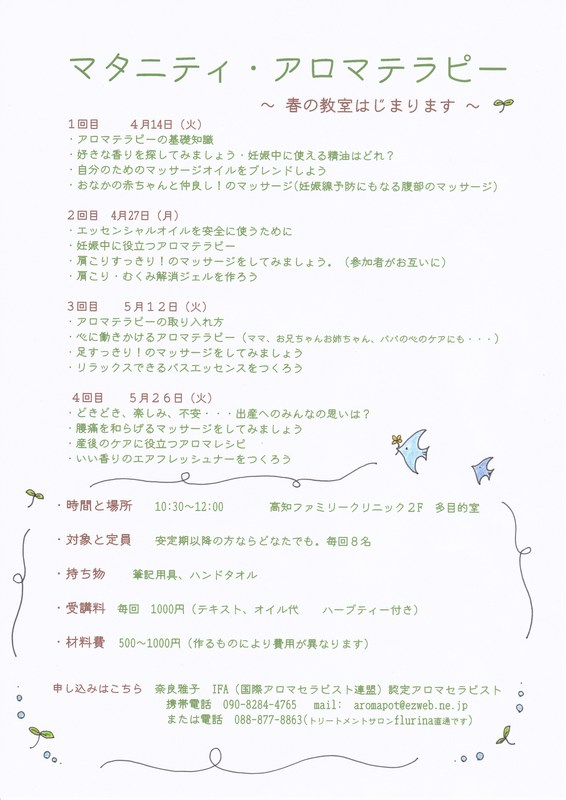 マタニティ・アロマテラピー
～ 春の教室はじまります ～
１回目　　４月14日（火）
・アロマテラピーの基礎知識
・好きな香りを探してみましょう・妊娠中に使える精油はどれ？
・自分のためのマッサージオイルをブレンドしよう
・おなかの赤ちゃんと仲良し！のマッサージ(妊娠線予防にもなる腹部のマッサージ)
２回目　4月27日（月）
・エッセンシャルオイルを安全に使うために
・妊娠中に役立つアロマテラピー
・肩こりすっきり！のマッサージをしてみましょう。（参加者がお互いに）
・肩こり・むくみ解消ジェルを作ろう
３回目　　５月１２日（火）
・アロマテラピーの取り入れ方
・心に働きかけるアロマテラピー（ママ、お兄ちゃんお姉ちゃん、パパの心のケアにも・・・）
・足すっきり！のマッサージをしてみましょう
・リラックスできるバスエッセンスをつくろう
４回目　　５月２６日（火）
・どきどき、楽しみ、不安・・・出産へのみんなの思いは？
・腰痛を和らげるマッサージをしてみましょう
・産後のケアに役立つアロマレシピ
・いい香りのエアフレッシュナーをつくろう
・時間と場所　10:30～12:00　　　高知ファミリークリニック２F　多目的室
・対象と定員　安定期以降の方ならどなたでも。毎回８名
・持ち物　筆記用具、ハンドタオル
・受講料　毎回　1000円（テキスト、オイル代　　ハーブティー付き）
・材料費　500～1000円（作るものにより費用が異なります）
申し込みはこちら　奈良雅子　IFA（国際アロマセラピスト連盟）認定アロマセラピスト
携帯電話　090-8284-4765　mail:　aromapot@ezweb.ne.jp
または電話　088-877-8863(トリートメントサロンflurina直通です）